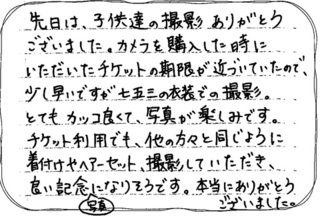 先日は、子供達の撮影 ありがとう
ございました。カメラを購入した時に
いただいたチケットの期限が近づいていたので、
少し早いですが七五三の衣装での撮影。
とても カッコ良くて、写真が楽しみです。
チケット利用でも、他の方々と同じように
着付けやヘアーセット、撮影していただき、
良い記念になりそうです。本当にありがとう
写真
ございました。